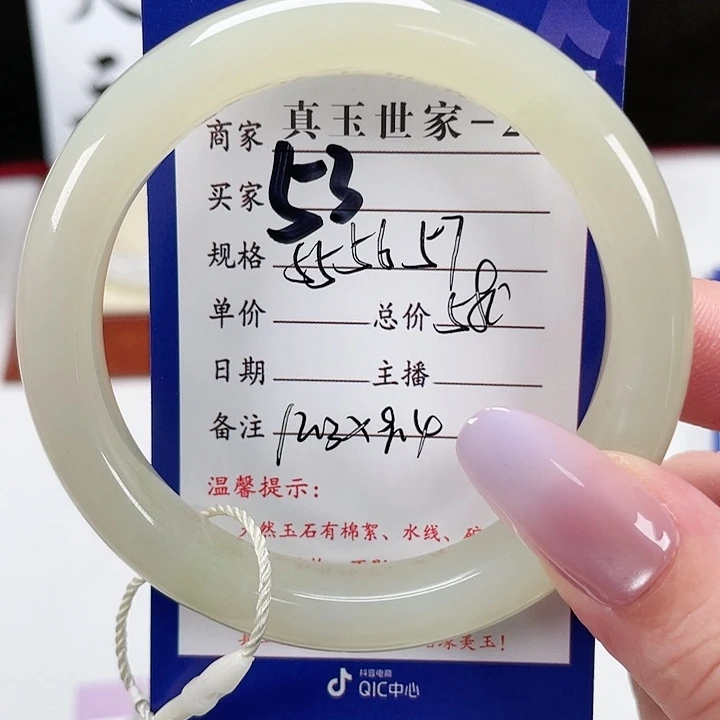 商家 真玉世家-2
买家 53
规格 55 56 57
单价 总价 580
日期 主播
备注 12.3×9.4
温馨提示:
天然玉石有棉絮、水线、矿
美玉!
抖音电商
QIC中心